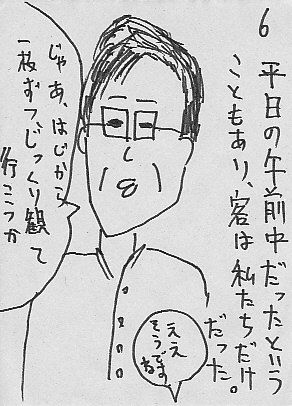 6
平日の午前中だったという
こともあり、客は私たちだけ
だった。
じゃあ、はじから
一枚ずつじっくり観て
行こっか
ええ
そうです
ね